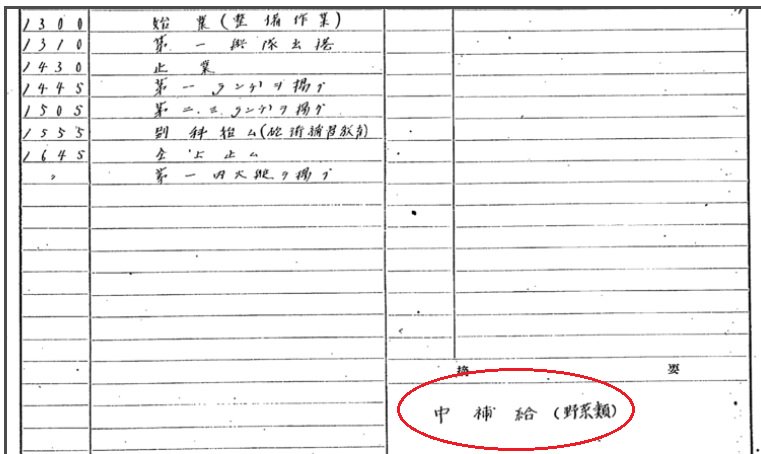 1300 始業(整備作業)
1310 第一艦隊出港
1430 止業
1445 第一ランチヲ揚グ
1505 第二、三ランチヲ揚グ
1555 別科始ム(砲術補習教育)
1645 全上止ム
〃 第一内火艇ヲ揚グ
摘要
中補給(野菜類)